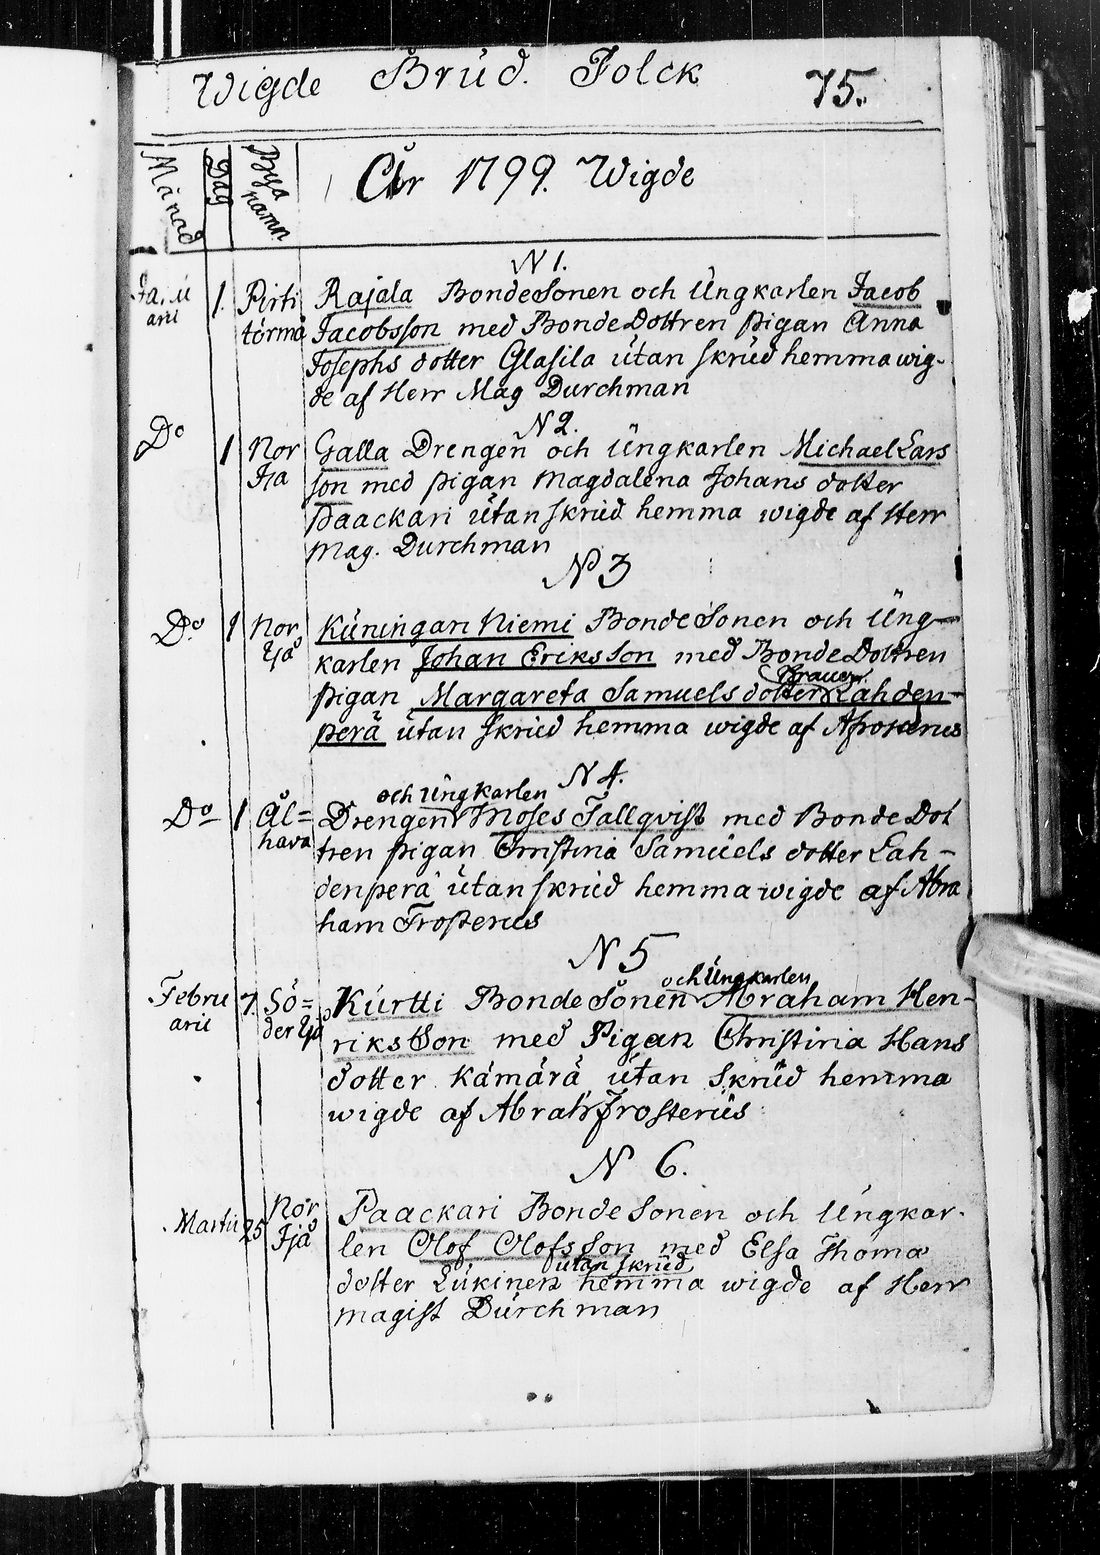 Wigde Brud. Folck 75.
Månad Dag Bya namn
År 1799. Wigde
N 1.
Januarii 1. Pirti Rajala BondeSonen och Ungkarlen Jacob
törmä Jacobsson med BondeDottren pigan Anna
Josephs dotter Glasila utan skrud hemma wig-
de af Herr Mag Durchman
N 2.
Do 1 Nor Galla Drengen och Ungkarlen Michael Lars
Ijå son med pigan Magdalena Johans dotter
Paackari utan skrud hemma wigde af Herr
Mag. Durchman
N 3
Do 1 Nor Kuningan Niemi BondeSonen och Ung-
Ijå karlen Johan Eriksson med BondeDottren
Brauer
pigan Margareta Samuels dotter Lahden-
perä utan skrud hemma wigde af Afrosterus
N 4.
och Ungkarlen
Do 1 Ål= Drengen Moses Tallqvist med BondeDot
hava tren pigan Christina Samuels dotter Lah-
denperä utan skrud hemma wigde af Abra
ham Frosterus
N 5
och Ungkarlen
Febru 7. Sö= Kurtti BondeSonen Abraham Hen-
arii der Ijå riksSon med Pigan Christina Hans
dotter Kämärä utan skrud hemma
wigde af Abrah Frosterus
N 6.
Martii 25 Nor Paackari BondeSonen och Ungkar-
Ijå len Olof Olofsson med Elsa Thoma
utan skrud
dotter Lukinen hemma wigde af Herr
magist Durchman